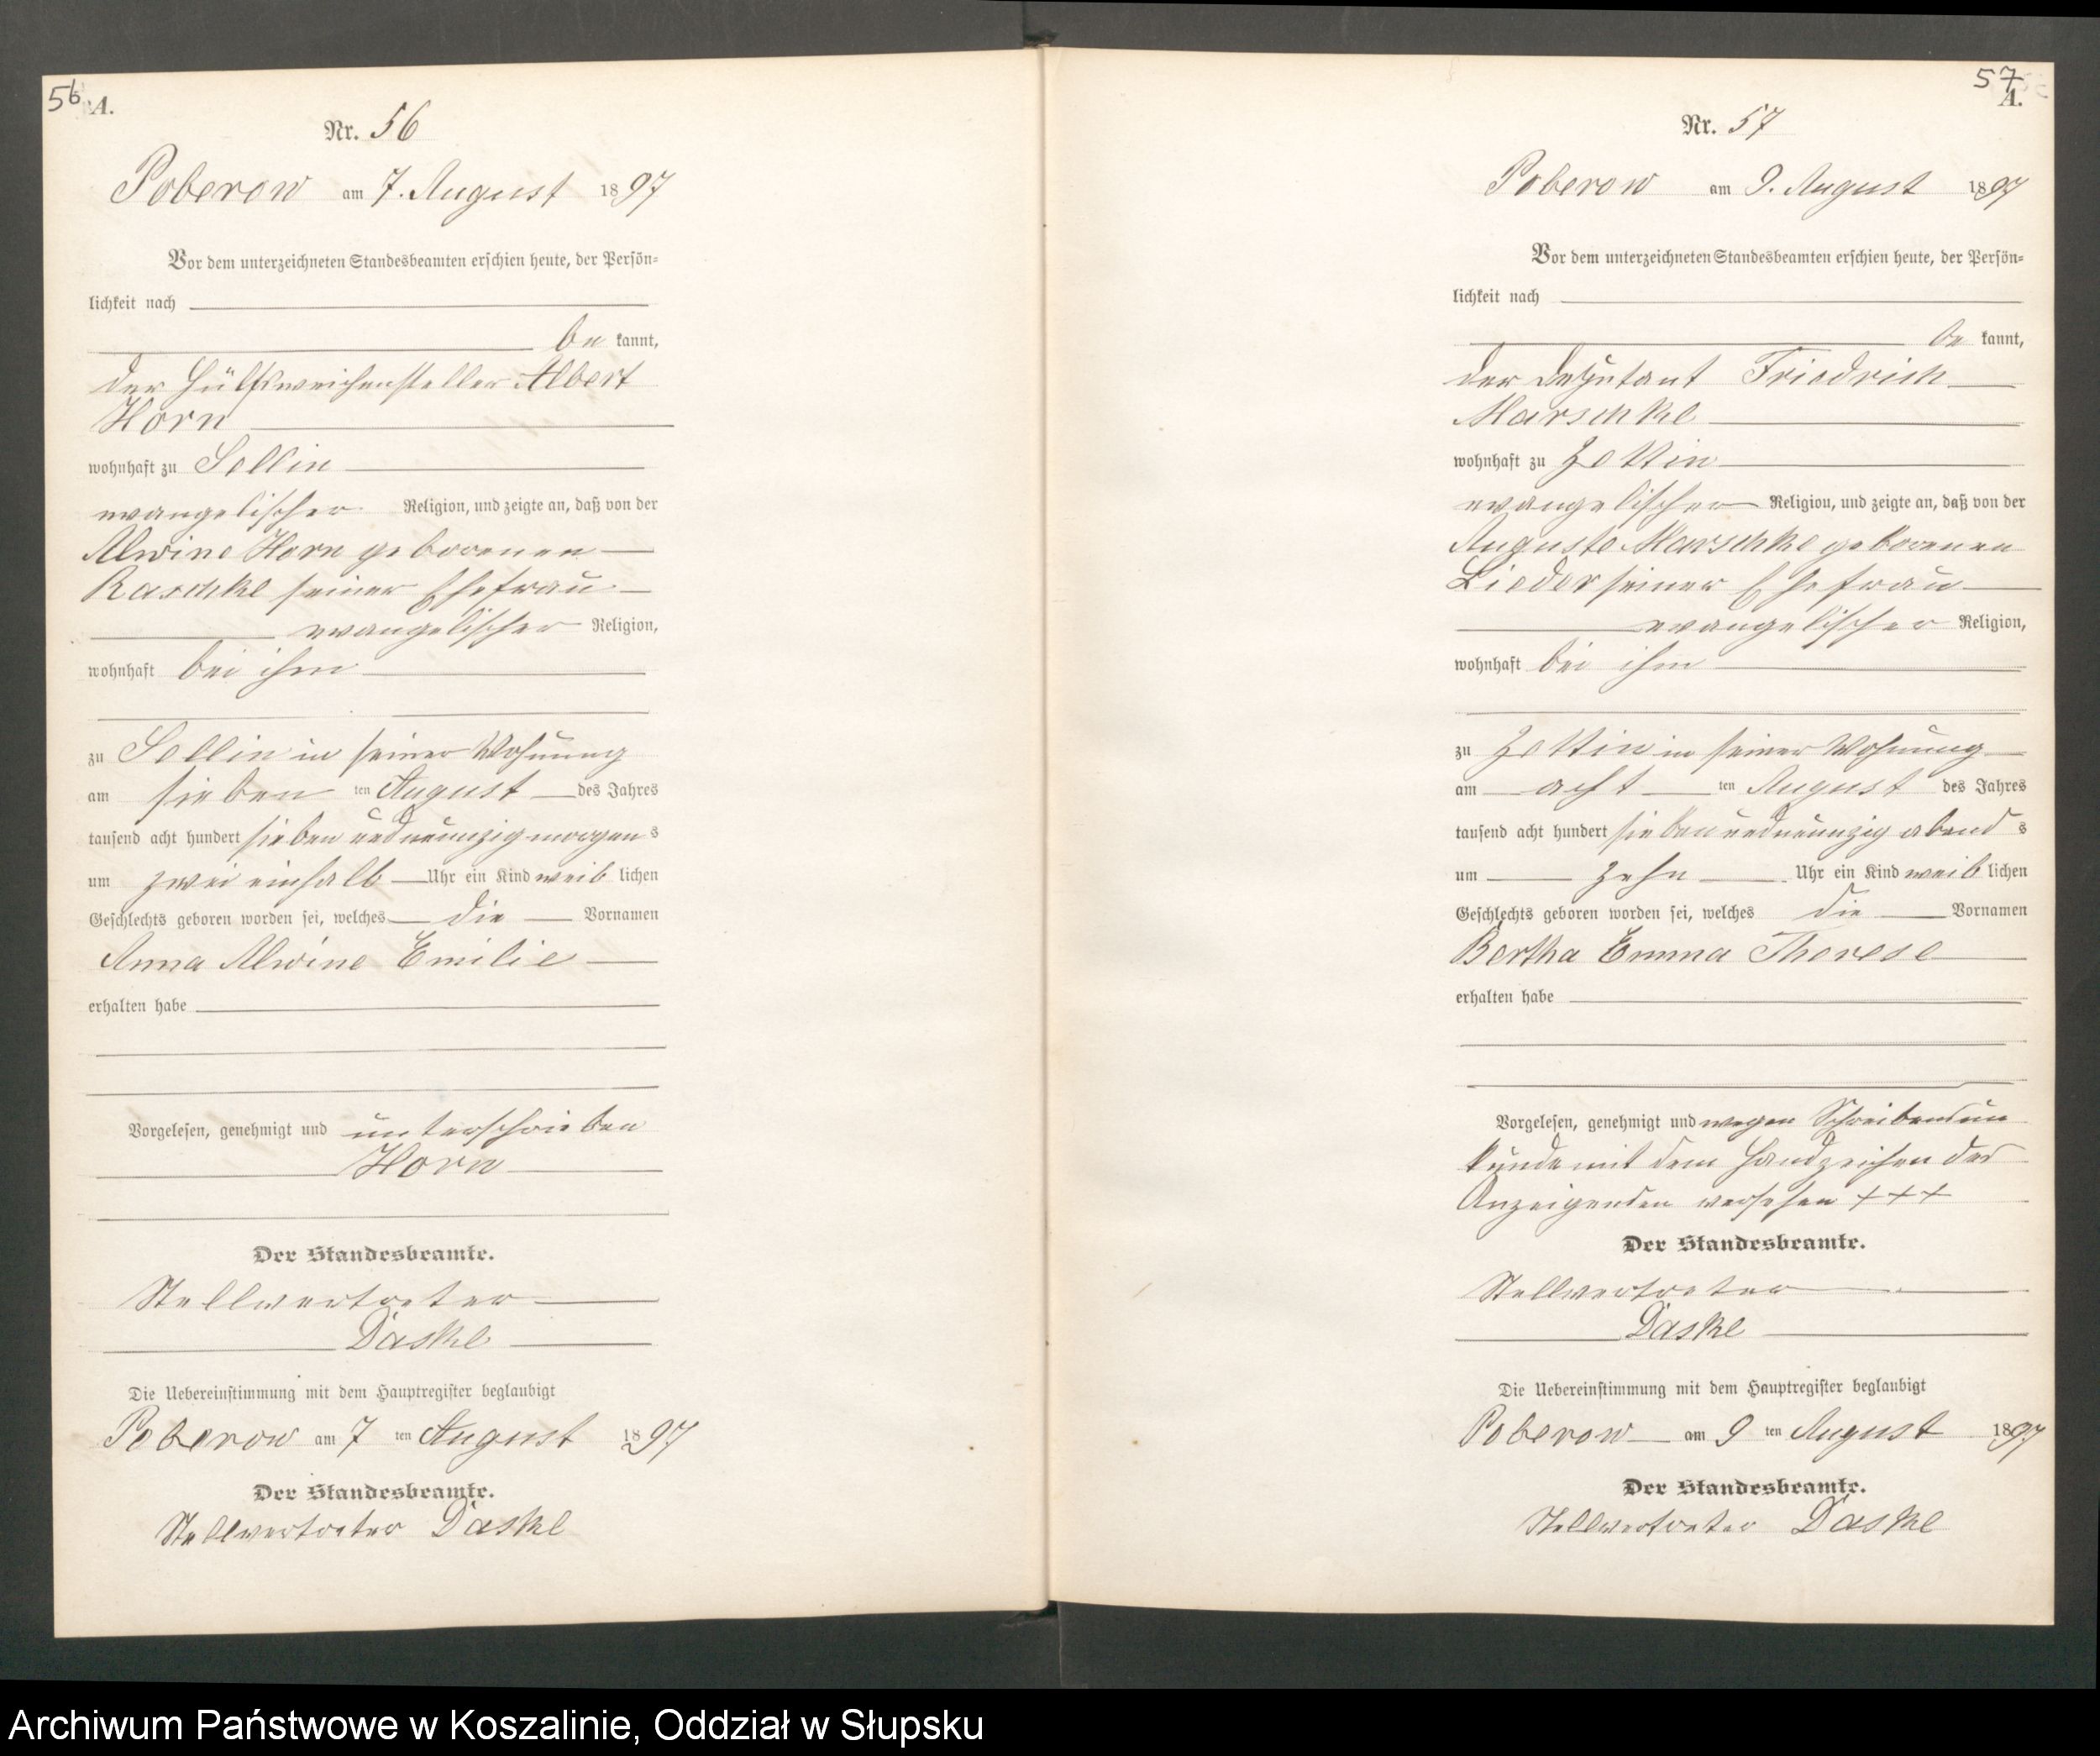 56
A.
Nr. 56
Poberow am 7. August 1897
Vor dem unterzeichneten Standesbeamten erschien heute, der Persön-
lichkeit nach
be kannt,
der Hülfsweichensteller Albert
Horn
wohnhaft zu Sellin
evangelischer Religion, und zeigte an, daß von der
Alwine Horn geborenen
Raschke seiner Ehefrau
evangelischer Religion,
wohnhaft bei ihm
zu Sellin in seiner Wohnung
am sieben ten August des Jahres
tausend acht hundert sieben und neunzig morgens
um zwei einhalb Uhr ein Kind weib lichen
Geschlechts geboren worden sei, welches die Vornamen
Anna Alwine Emilie
erhalten habe
Vorgelesen, genehmigt und unterschrieben
Horn
Der Standesbeamte.
Stellvertreter
Daske
Die Uebereinstimmung mit dem Hauptregister beglaubigt
Poberow am 7 ten August 1897
Der Standesbeamte.
Stellvertreter Daske
57
A.
Nr. 57
Poberow am 9. August 1897
Vor dem unterzeichneten Standesbeamten erschien heute, der Persön-
lichkeit nach
be kannt,
der Deputant Friedrich
Marschke
wohnhaft zu Zettin
evangelischer Religion, und zeigte an, daß von der
Auguste Marschke geborenen
Lieder seiner Ehefrau
evangelischer Religion,
wohnhaft bei ihm
zu Zettin in seiner Wohnung
am acht ten August des Jahres
tausend acht hundert sieben und neunzig abends
um zehn Uhr ein Kind weib lichen
Geschlechts geboren worden sei, welches die Vornamen
Bertha Emma Therese
erhalten habe
Vorgelesen, genehmigt und wegen Schreibensun
kunde mit dem Handzeichen des
Anzeigenden versehen +++
Der Standesbeamte.
Stellvertreter
Daske
Die Uebereinstimmung mit dem Hauptregister beglaubigt
Poberow am 9 ten August 1897
Der Standesbeamte.
Stellvertreter Daske
Archiwum Państwowe w Koszalinie, Oddział w Słupsku